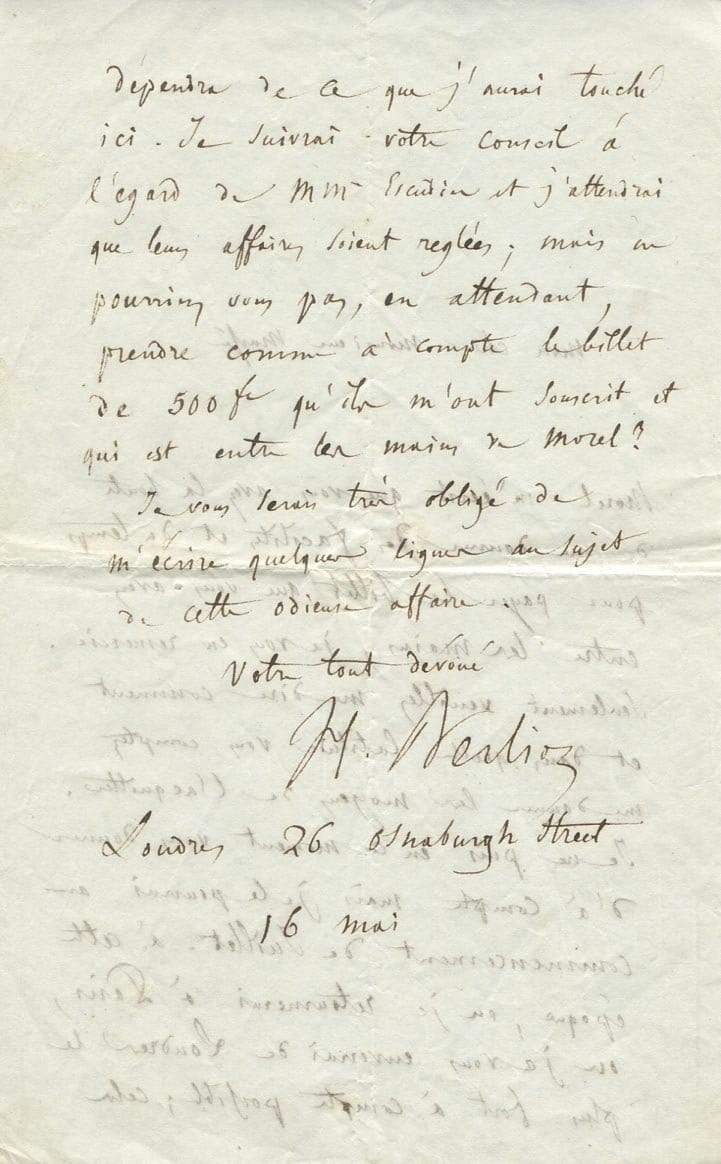 dépendra de ce que j'aurai touché
ici. Je suivrai votre conseil à
l'égard de MM. Escudier et j'attendrai
que leurs affaires soient reglées; mais ne
pourriez vous pas, en attendant,
prendre comme à compte le billet
de 500 fr qu'ils m'ont souscrit et
qui est entre les mains de Morel?
Je vous serais très obligé de
m'écrire quelques lignes au sujet
de cette odieuse affaire.
Votre tout dévoué
H. Berlioz
Londres 26 osnaburgh Street
16 mai